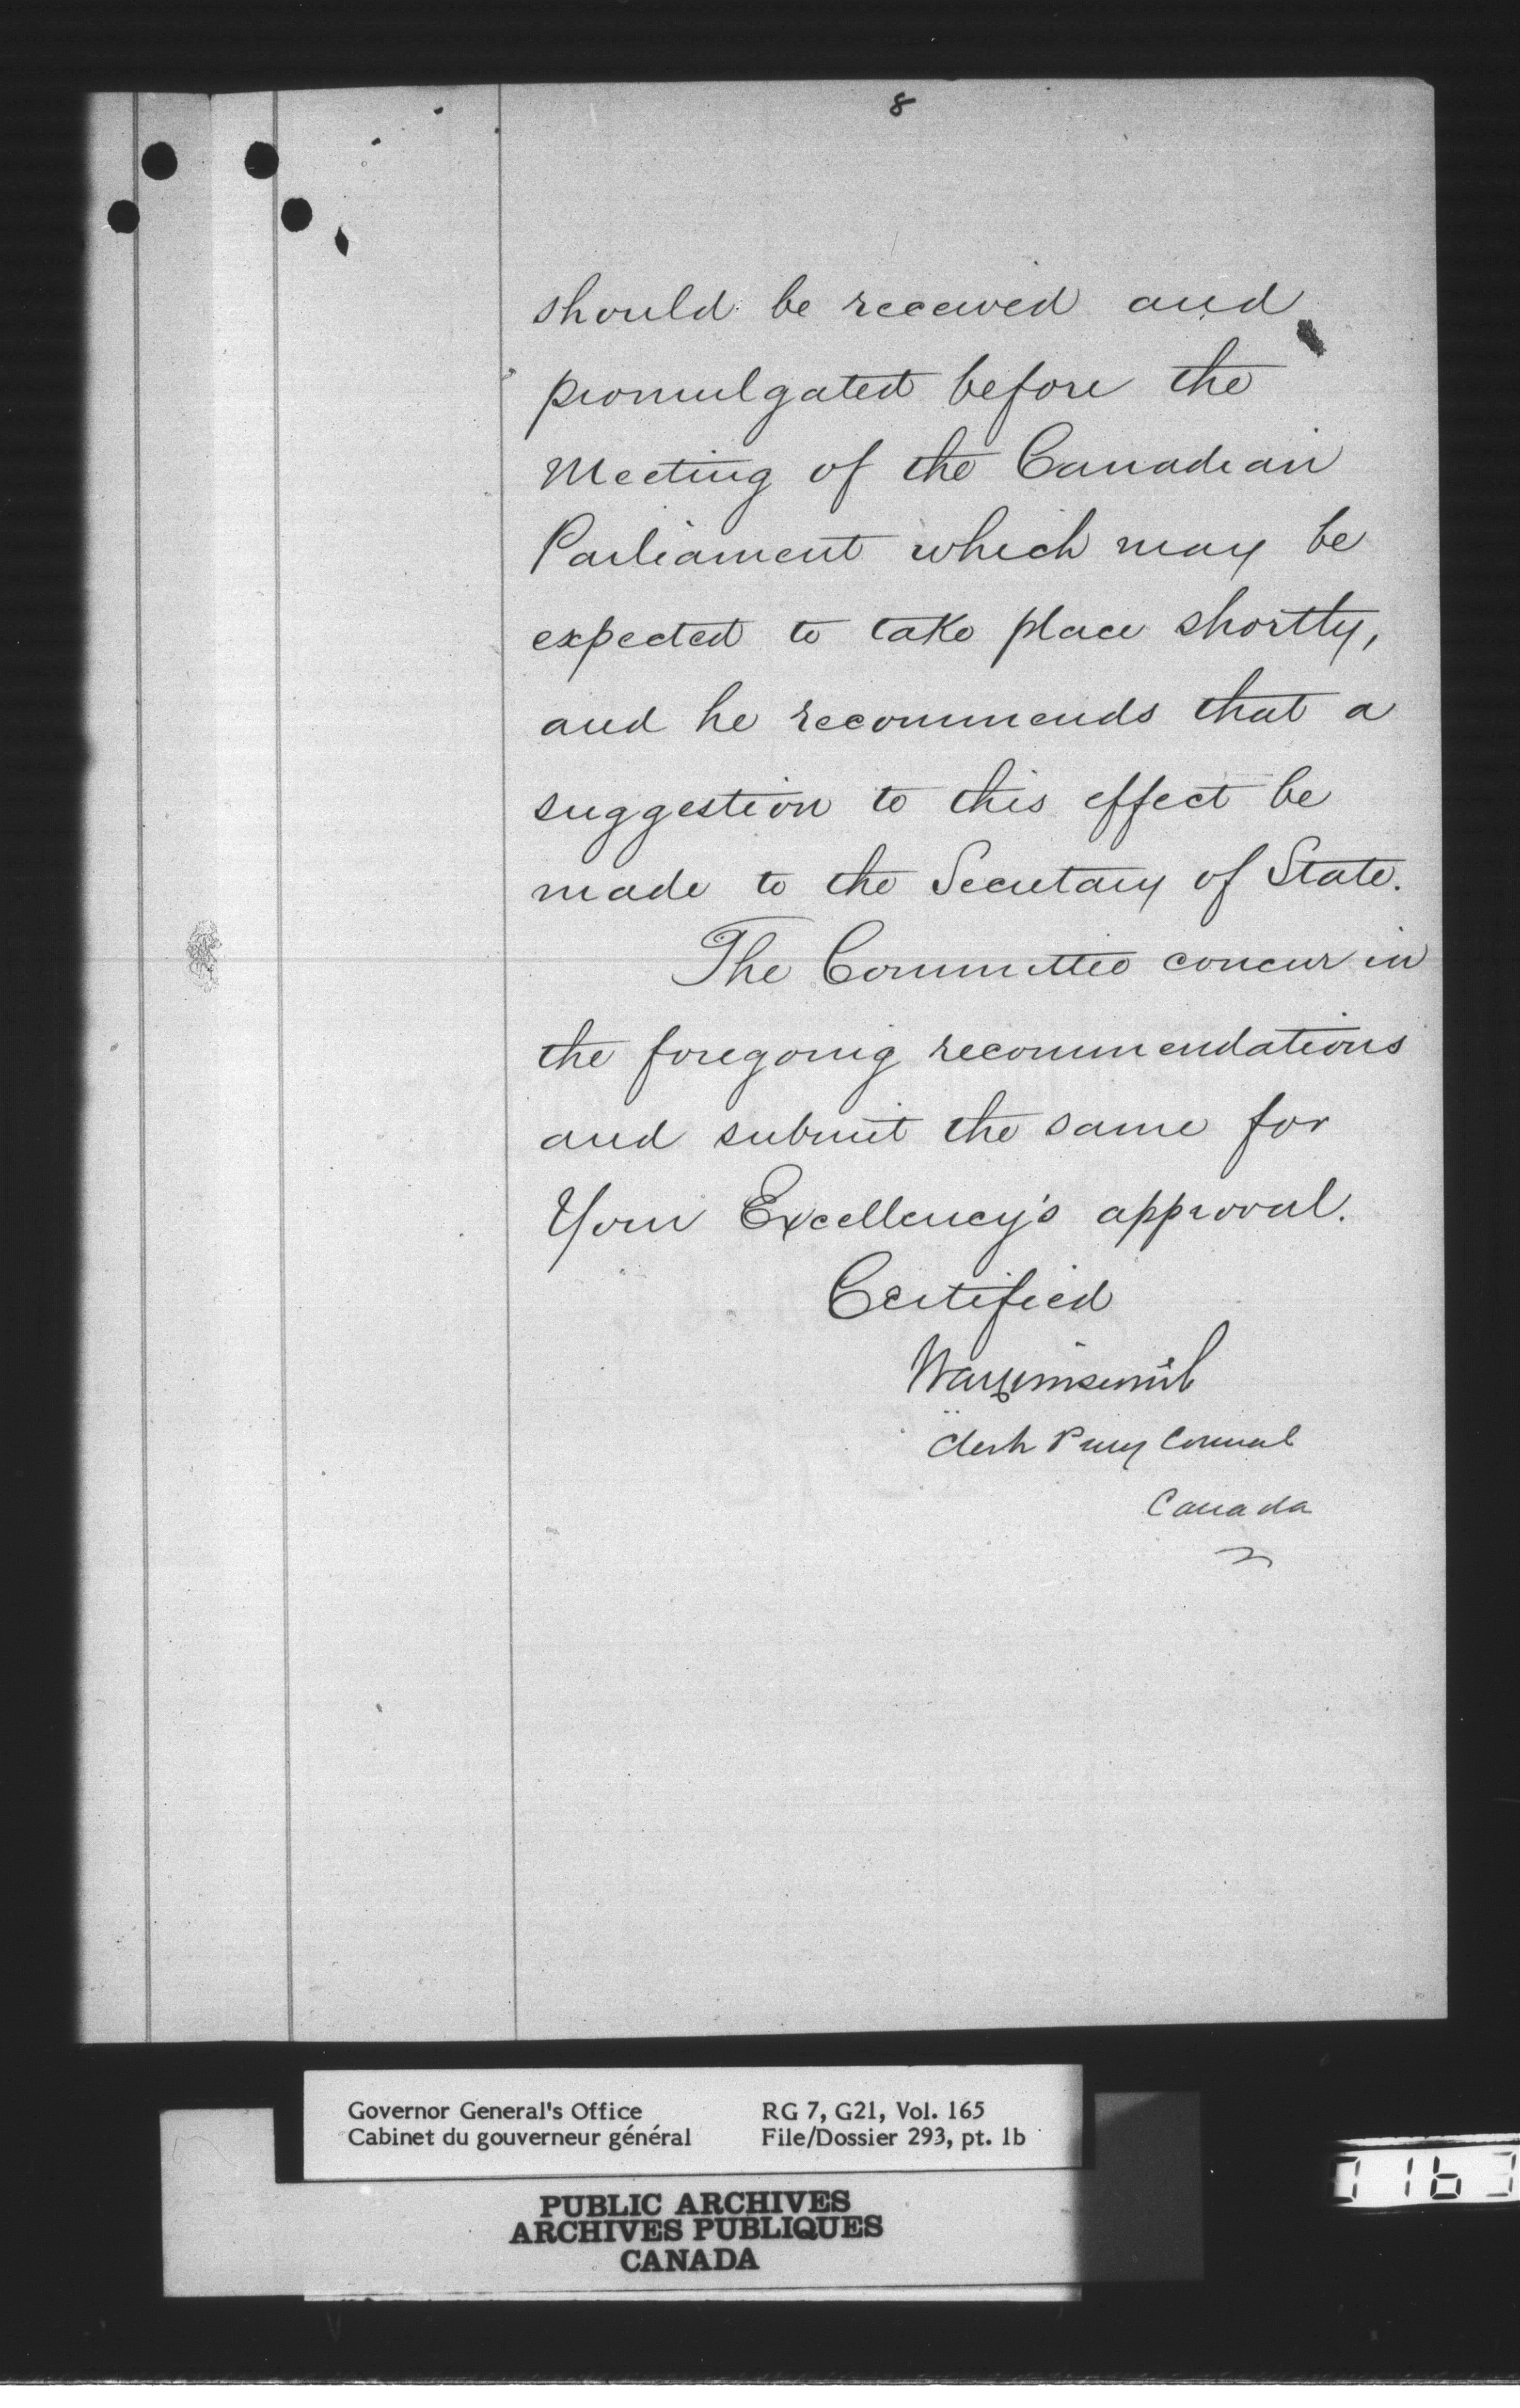 8
should be received and
promulgated before the
Meeting of the Canadian
Parliament which may be
expected to take place shortly,
and he recommends that a
suggestion to this effect be
made to the Secretary of State.
The Committee concur in
the foregoing recommendations
and submit the same for
Your Excellency's approval.
Certified
Clerk Privy Council
Canada
Governor General's Office
Cabinet du gouverneur général
RG 7, G21, Vol. 165
File/Dossier 293, pt. 1b
PUBLIC ARCHIVES
ARCHIVES PUBLIQUES
CANADA